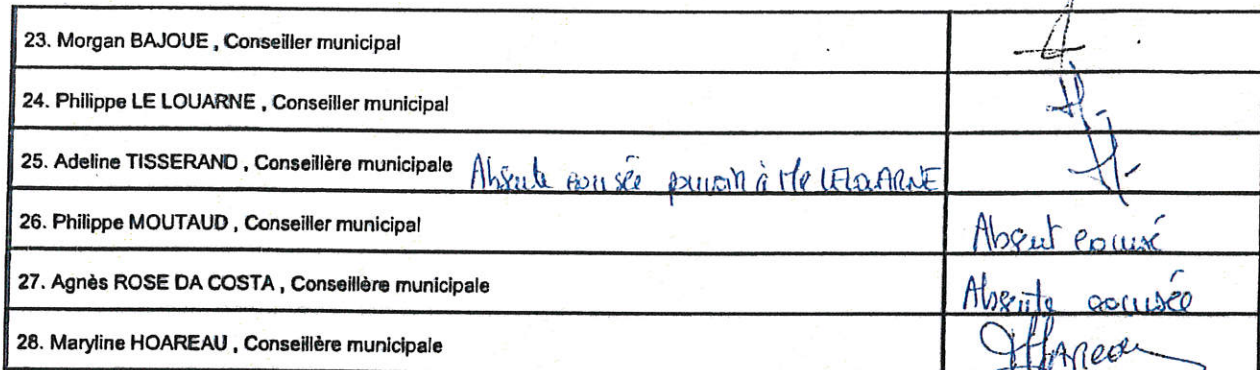 23. Morgan BAJOUE , Conseiller municipal
24. Philippe LE LOUARNE , Conseiller municipal
25. Adeline TISSERAND , Conseillère municipale Absente excusée pouvoir à Mr LELOUARNE
26. Philippe MOUTAUD , Conseiller municipal Absent excusé
27. Agnès ROSE DA COSTA , Conseillère municipale Absente excusée
28. Maryline HOAREAU , Conseillère municipale